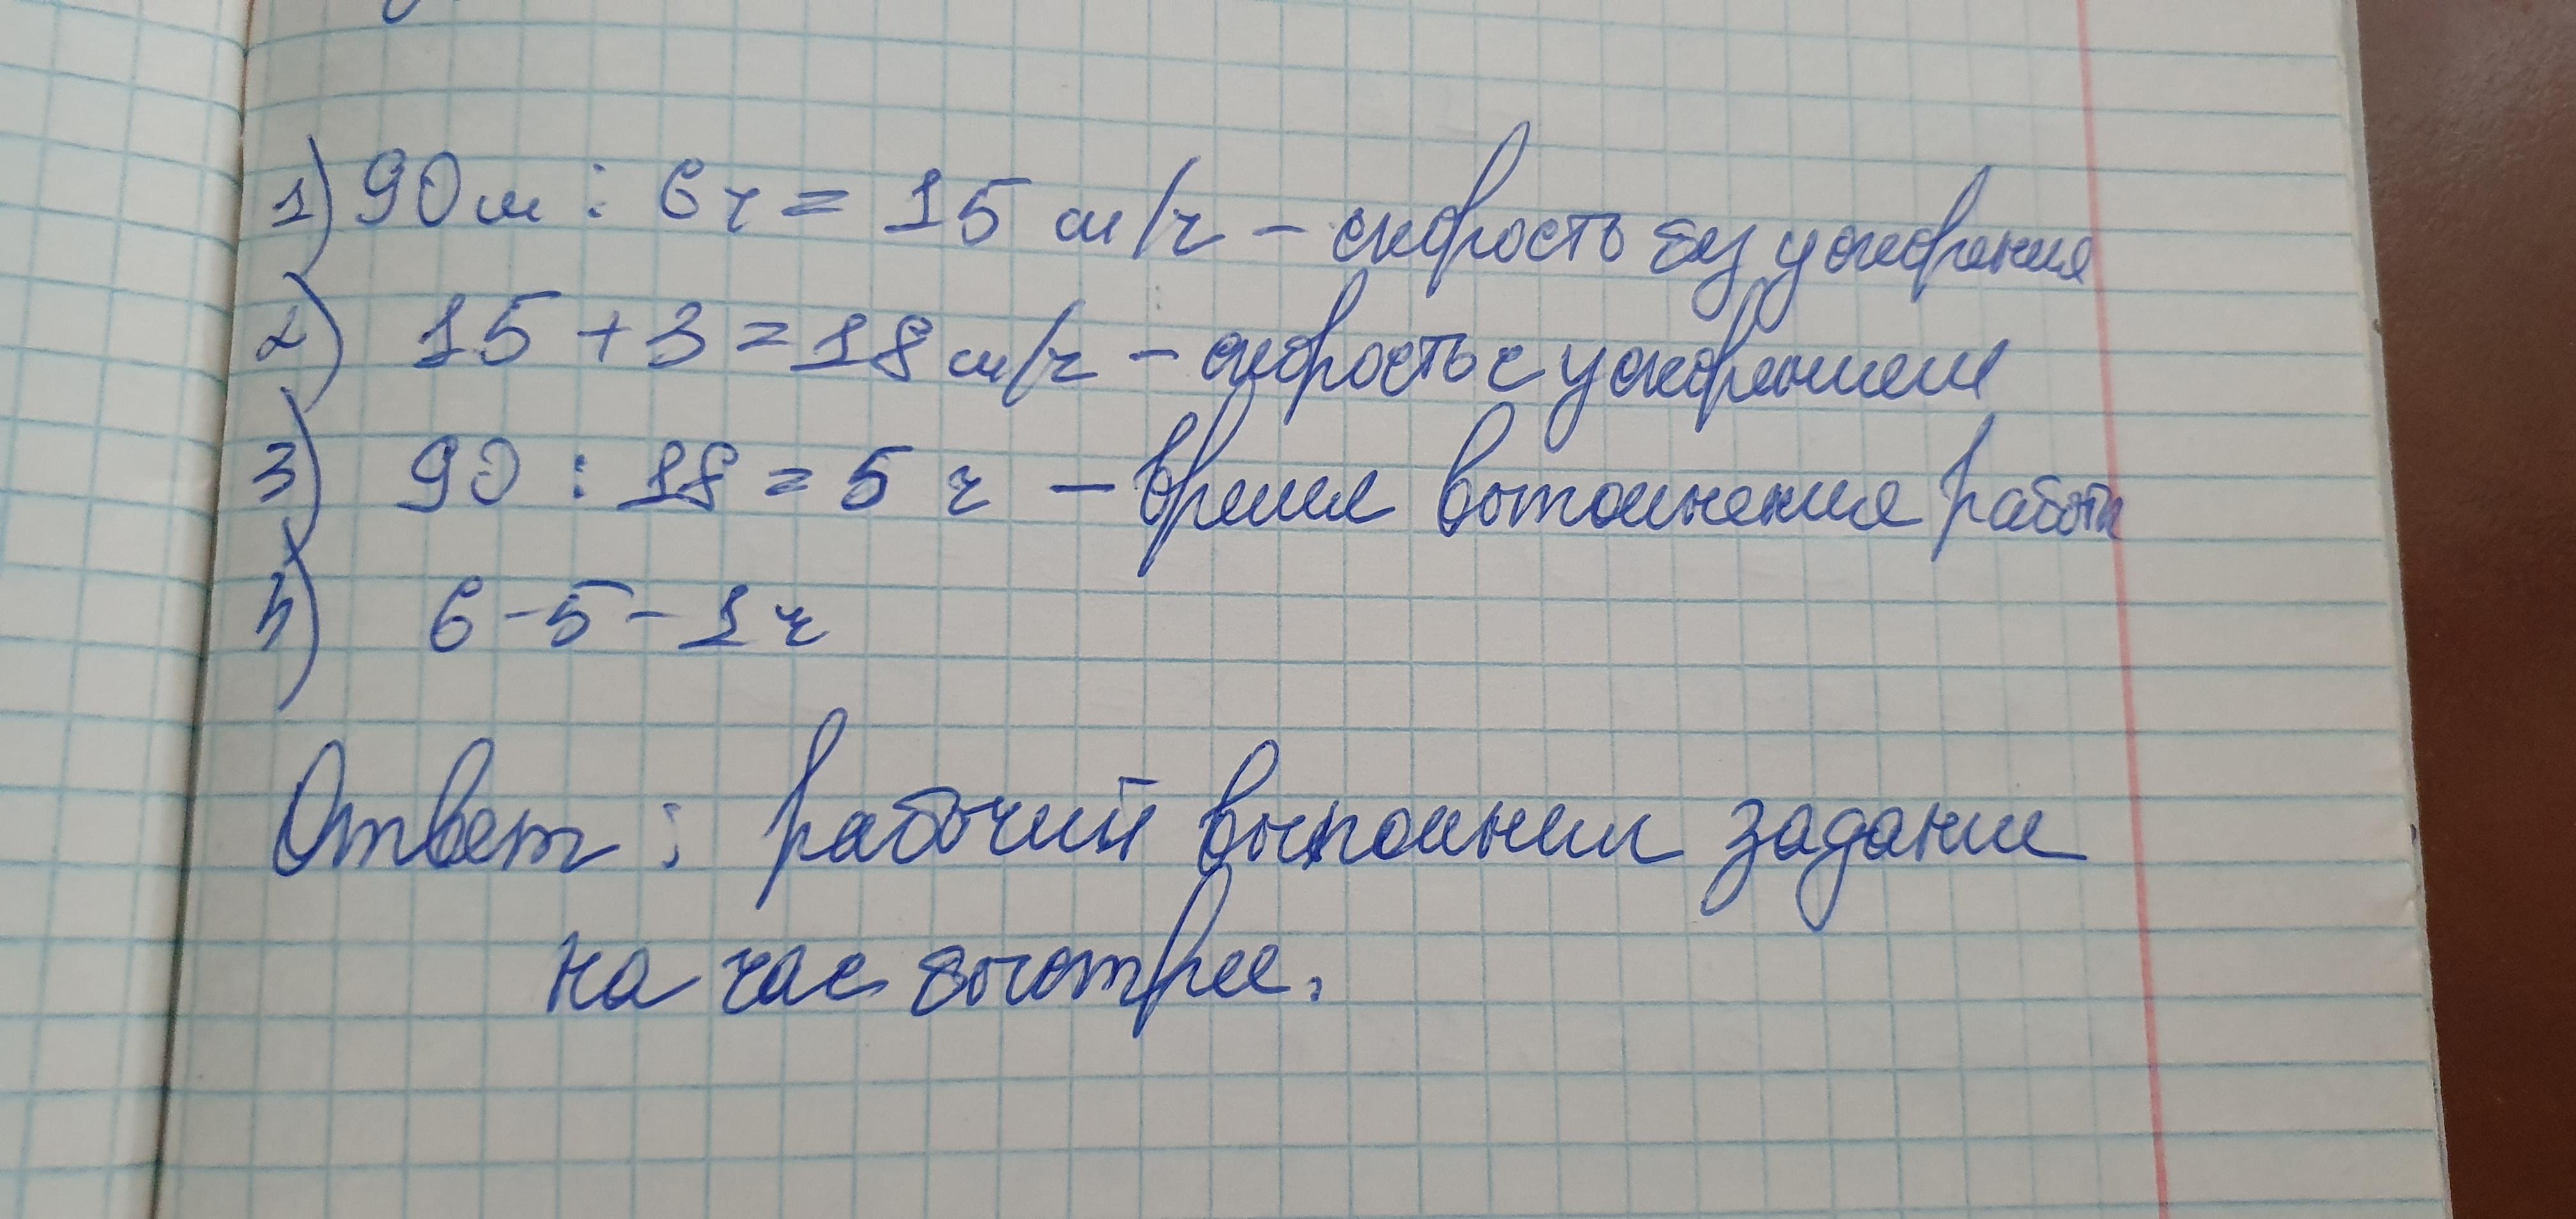 1) 90 м : 6 ч = 15 м/ч – скорость без ускорения
2) 15 + 3 = 18 м/ч – скорость с ускорением
3) 90 : 18 = 5 ч – время выполнения работы
4) 6 – 5 – 1 ч
Ответ: рабочий выполнил задание
на час быстрее.